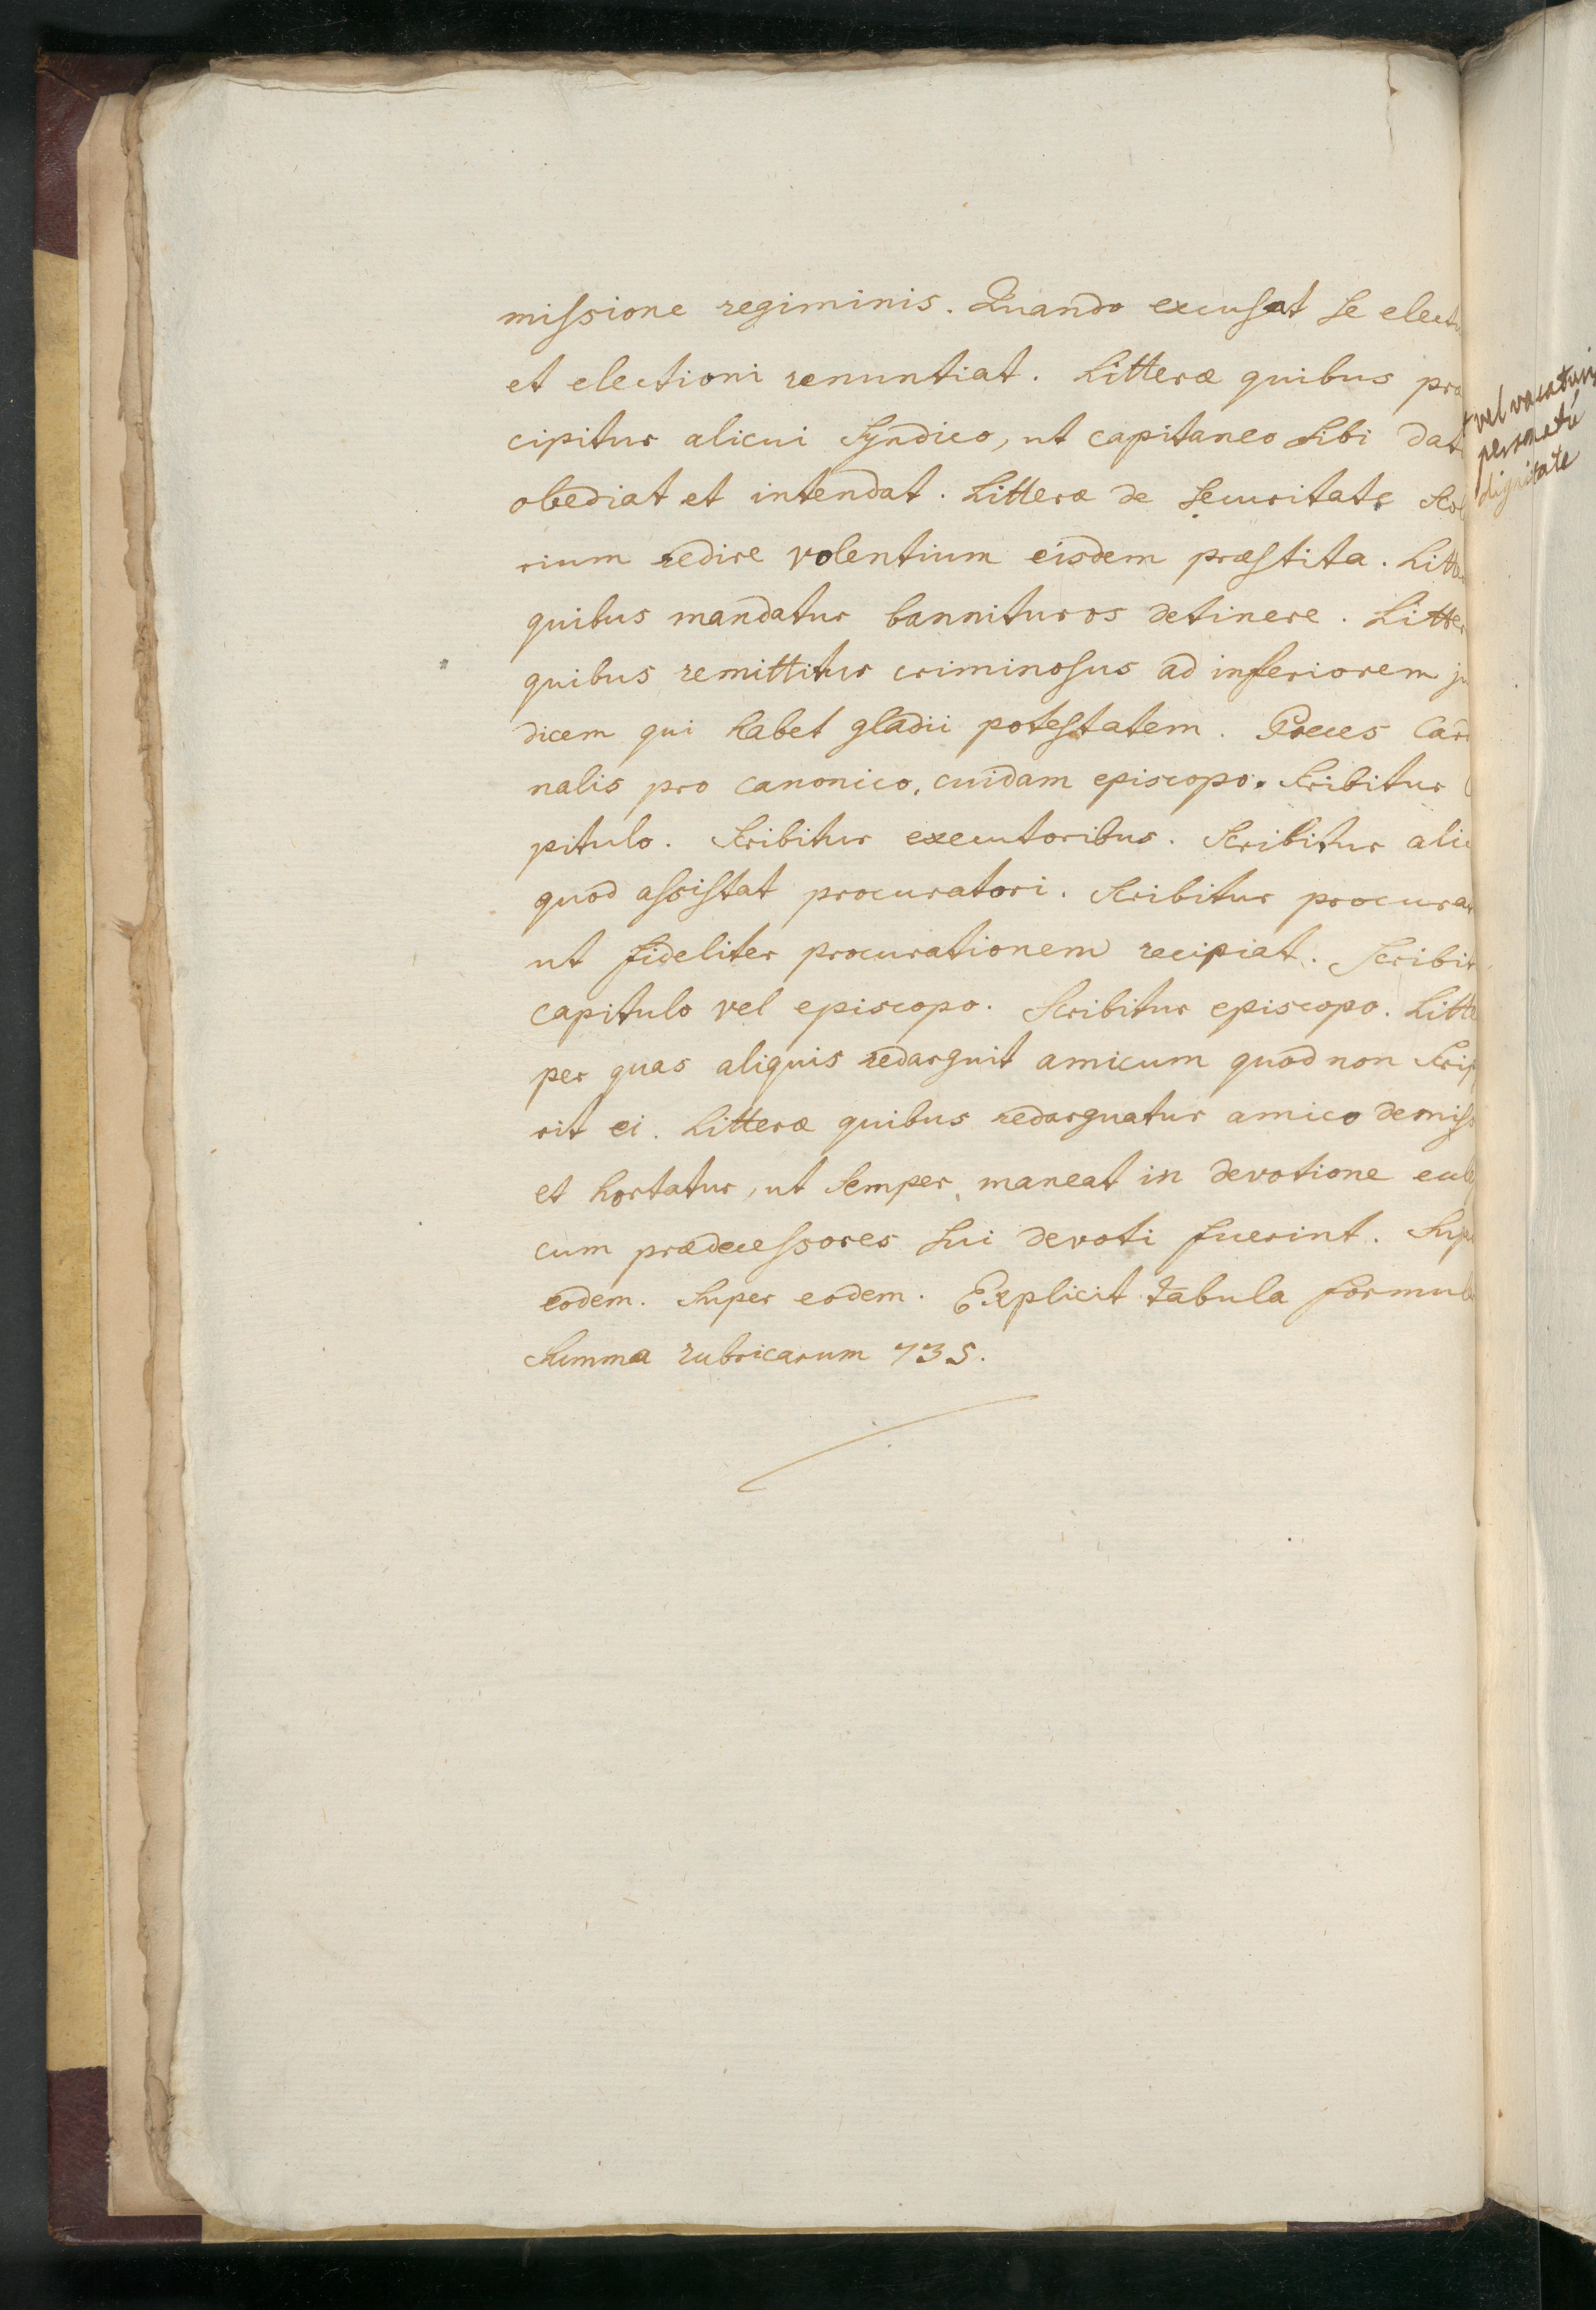 missione regiminis. Quando excusat se electu
et electioni renuntiat. Litteræ quibus præ
cipitur alicui Syndico, ut capitaneo sibi dat
obediat et intendat. Litteræ de securitate
rium redire volentium eisdem præstita. Litte
quibus mandatur bannituros detinere. Litter
quibus remittitur criminosus ad inferiorem ju
dicem qui habet gladii potestatem. Preces Car
nalis pro canonico, cuidam episcopo. Scribitur
pitulo. Scribitur executoribus. Scribitur alic
quod assistat procuratori. Scribitur procurat
ut fideliter procurationem recipiat. Scribit
capitulo vel episcopo. Scribitur episcopo. Litte
per quas aliquis redarguit amicum quod non scrip
rit ei. Litteræ quibus redarguatur amico demiss
et hortatur, ut semper maneat in devotione
cum prædecessores sui devoti fuerint. Sup
eodem. Super eodem. Explicit tabula formul
Summa rubricarum 735.
vel vacaturis
personatu
dignitate